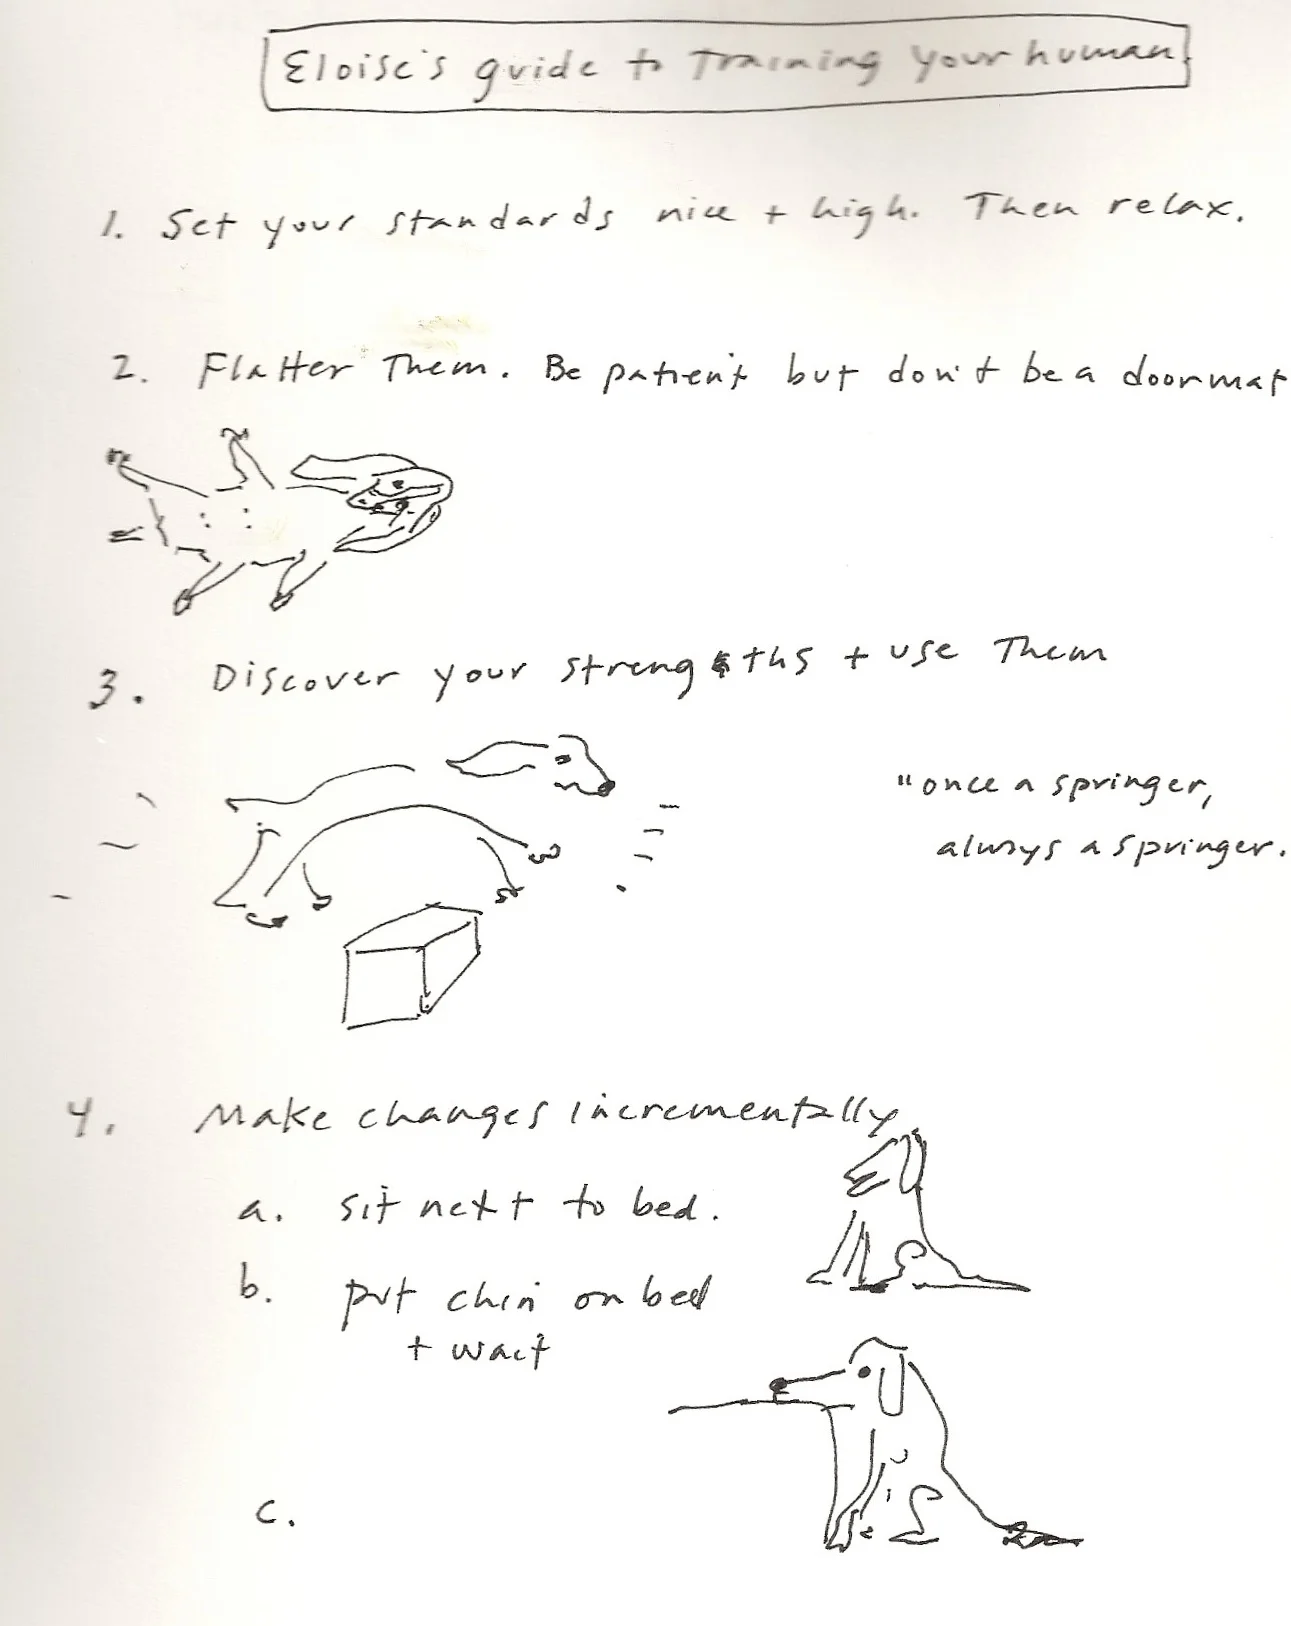 Eloise's guide to Training your human
1. Set your standards nice + high. Then relax.
2. Flatter Them. Be patient but don't be a doormat
3. Discover your strengths + use Them
"once a springer,
always a springer.
4. Make changes incrementally
a. sit next to bed.
b. put chin on bed
+ wait
c.